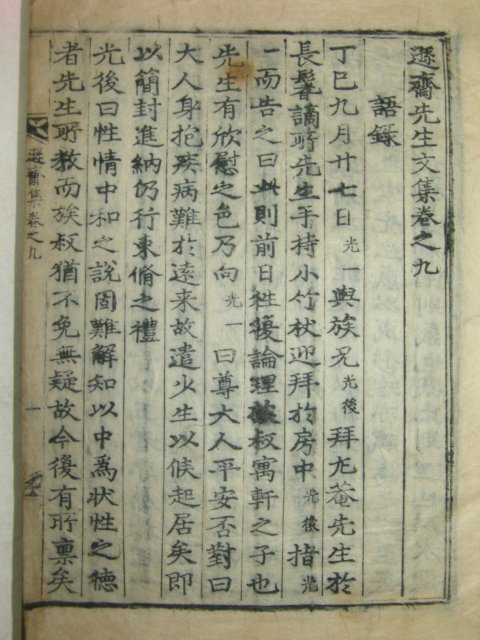 遜齋先生文集卷之九
語錄
丁巳九月廿七日光一與族兄光後拜尤菴先生於
長鬐謫所先生手持小竹杖迎拜於房中光後指光
一而告之曰此則前日往復論理族叔寓軒之子也
先生有欣慰之色乃向光一曰尊大人平安否對曰
大人身抱疾病難於遠來故遣少生以候起居矣即
以簡封進納仍行束脩之禮
光後曰性情中和之說固難解知以中爲狀性之德
者先生所教而族叔猶不免無疑故今後有所禀矣
遜齋集卷之九
一